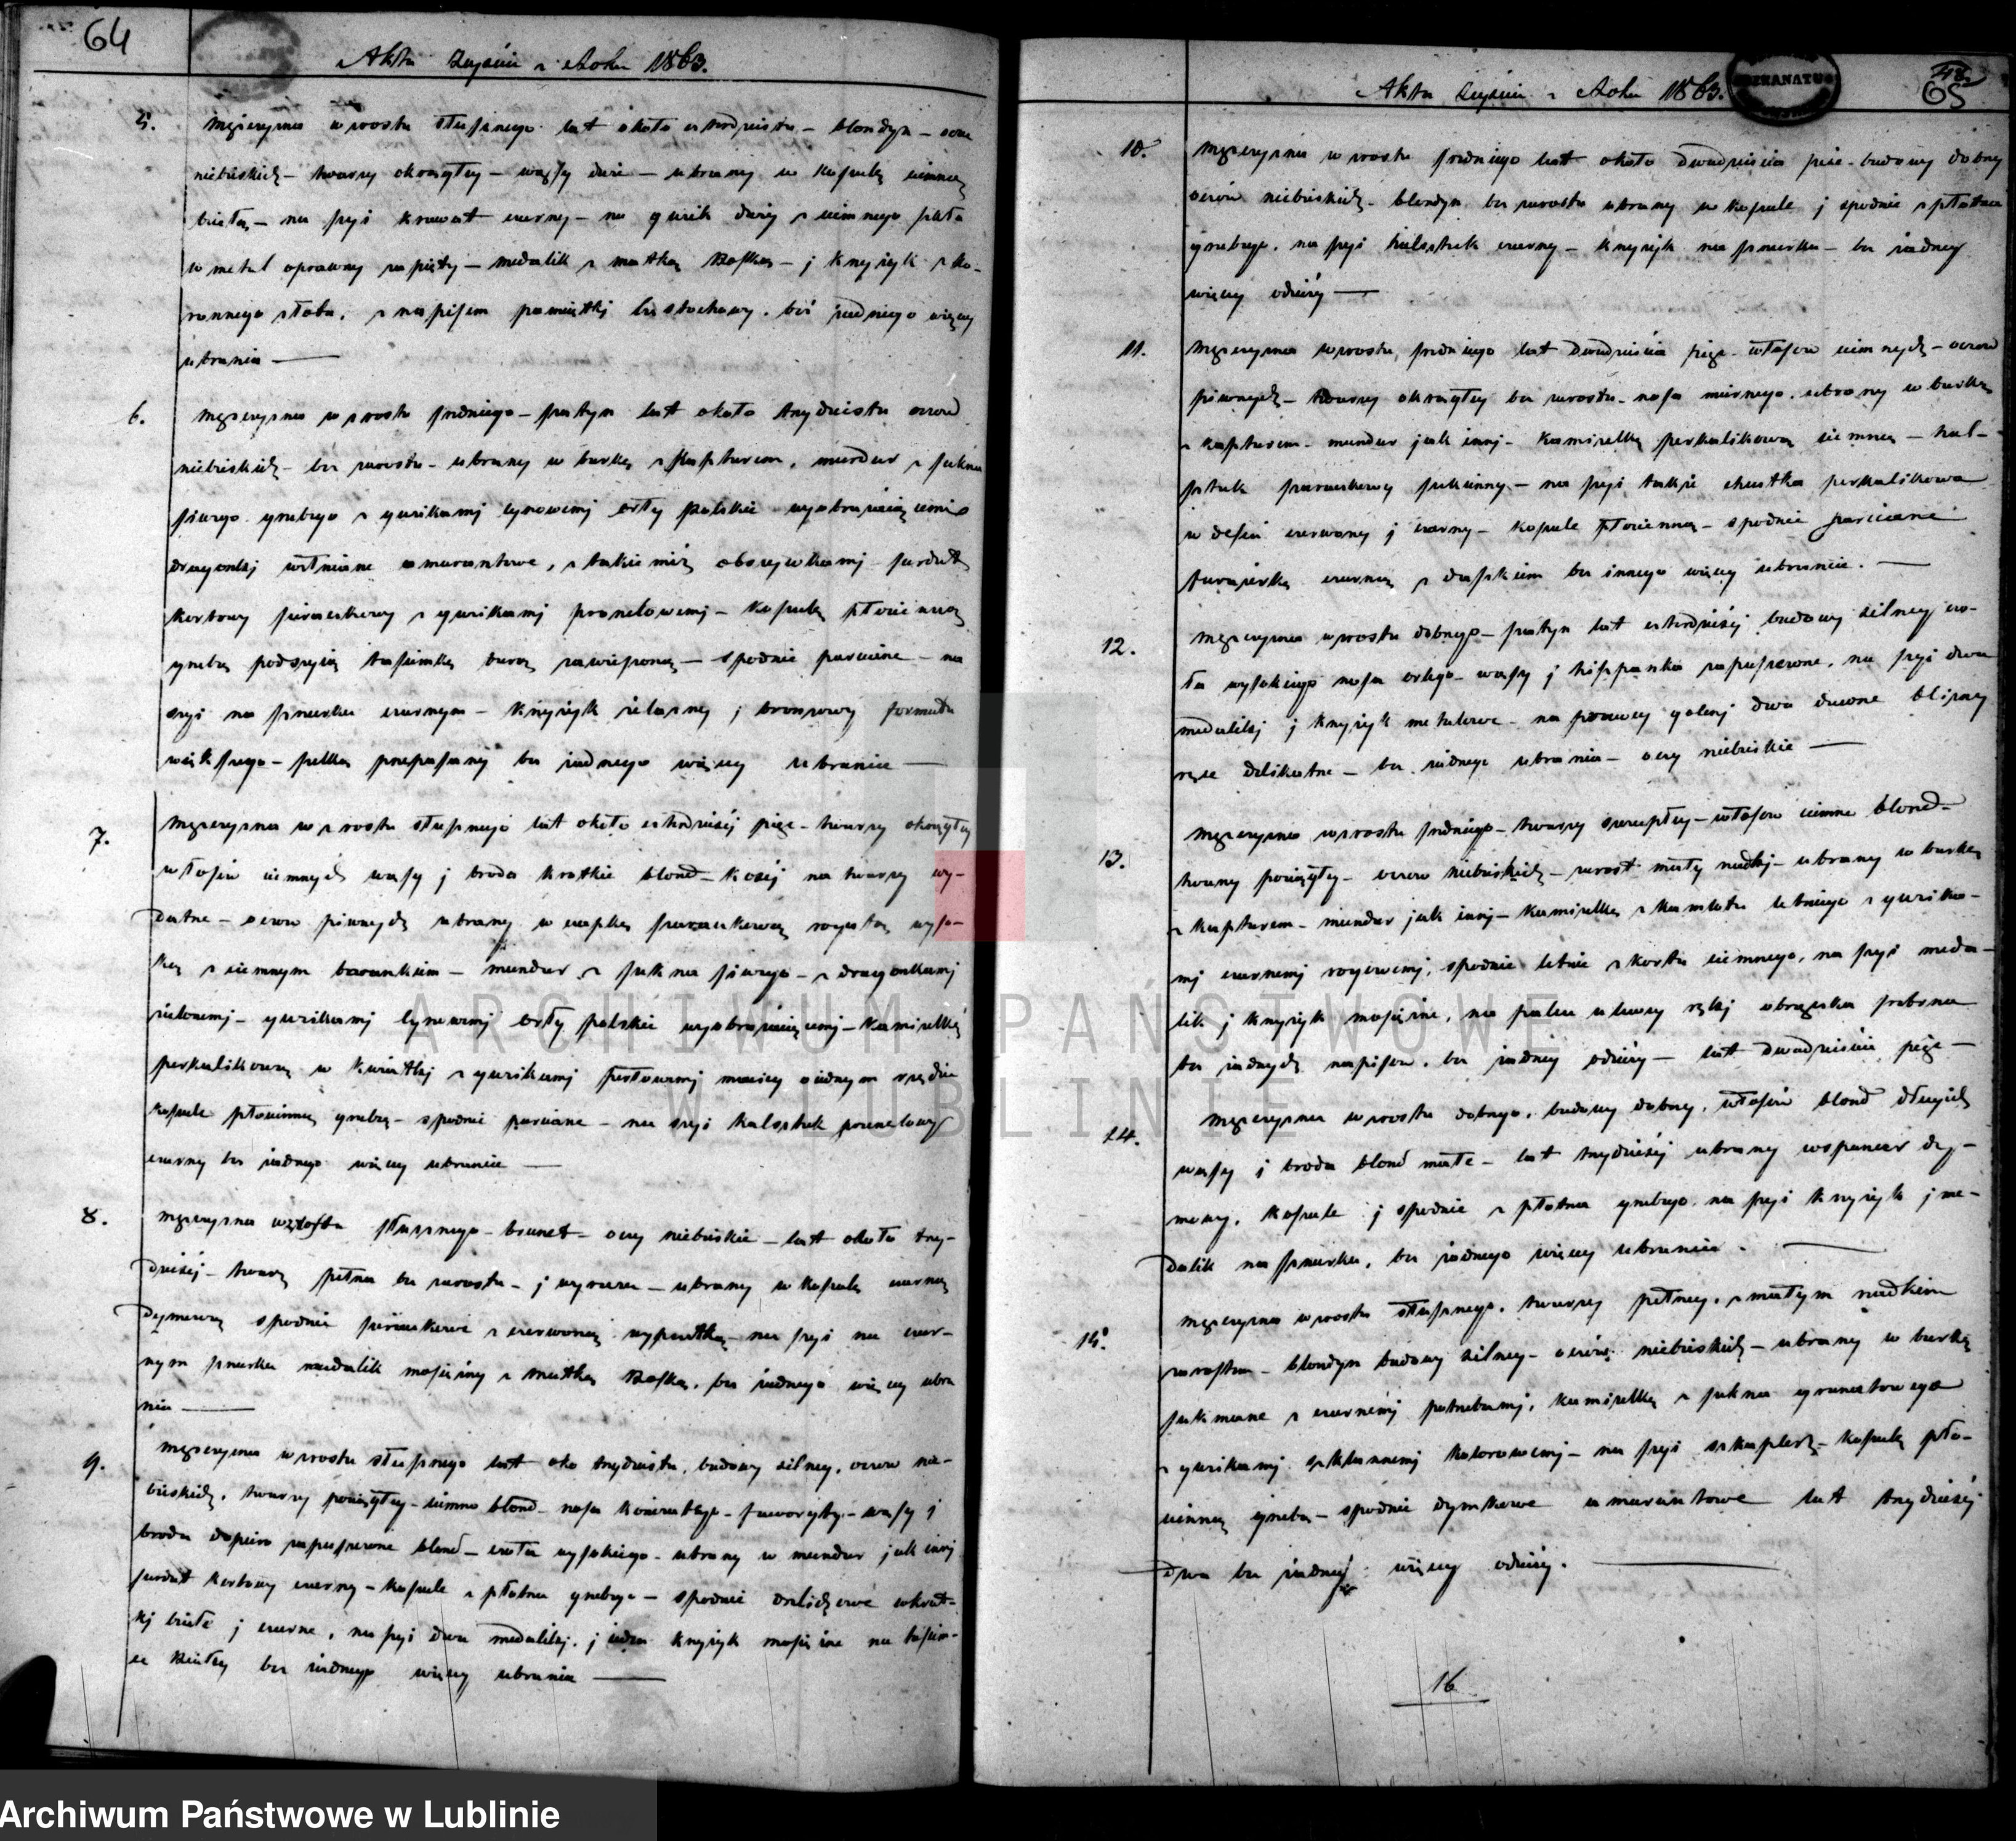 64
Akta Zejścia z Roku 1863.
5. Mężczyzna wzrostu słusznego lat około czterdziestu – blondyn – oczu
niebieskich – twarzy okrągłey – wąsy duże – ubrany w koszulę cienną
białą – na szyi krawat czarny – na guzik duży z ciemnego szkła
w metal oprawny zapięty – medalik z Matką Boską – i krzyżyk z ko-
ronnego złota, z napisem pamiątki Częstochowy. bez żadnego więcey
ubrania —
6. Mężczyzna wzrostu średniego – szatyn lat około trzydziestu oczów
niebieskich – bez zarostu – ubrany w burkę z kapturem, mundur z sukna
siwego grubego z guzikami cynowemi orły polskie wyobrażaiącemi
dragonki wełniane amarantowe, z takiemiż obszywkami surdut
kortowy siraczkowy z guzikami prunelowemi – koszulę płócienną
grubą pod szyią tasiemką burą zawiązoną – spodnie parciane – na
szyi na sznurku czarnym – krzyżyk żelazny i bronzowy formatu
większego – szelką przepasany bez żadnego więcey ubrania —
7. Mężczyzna wzrostu słusznego lat około czterdzieści pięć – twarzy okrągłey
włosów ciemnych wąsy i broda krótkie blond – kości na twarzy wy-
datne – oczów piwnych ubrany w czapkę siraczkową rogatą wyso-
ką z siemnym barankiem – mundur z sukna siwego – z dragonkami
zielonemi – guzikami cynowemi orły polskie wyobrażaiącemi – kamizelkę
perkalikową w kwiatki z guzikami
koszule płócienną grubą – spodnie parciane – na szyi halsztuk prunelowy
czarny bez żadnego więcey ubrania —
8. Mężczyzna wzrostu słusznego – brunet – oczy niebieskie – lat około trzy-
dzieści – twarz pełna bez zarostu – i wyrazu – ubrany w koszulę czarną
dymową spodnie siraczkowe z czerwoną wypustką – na szyi na czar-
nym sznurku medalik mosiężny z Matką Boską, bez żadnego więcey ubra
nia —
9. Mężczyzna wzrostu słusznego lat oko trzydziestu, budowy silney, oczów nie-
bieskich, twarzy pociągłey – ciemno blond – nosa – faworyty – wąsy i
broda dopiero zapuszczone blond – czoła wysokiego – ubrany w mundur jak inni
surdut kortowy czarny – koszule z płótna grubego – spodnie w krat-
ki białe i czarne, na szyi dwa medaliki i ieden krzyżyk mosiężne na tasiem-
ce białey bez żadnego więcey ubrania —
Akta Zejścia z Roku 1863.
DZIEKANATU
48
65
10. Mężczyzna wzrostu średniego lat około dwadzieścia pięć – budowy dobrey
oczów niebieskich – blondyn bez zarostu ubrany w koszule i spodnie z płótna
grubego, na szyi halsztuk czarny – krzyżyk na sznurku – bez żadney
więcey odzieży —
11. Mężczyzna wzrostu średniego lat dwadzieścia pięć – włosów ciemnych – oczów
piwnych – twarzy okrągłey bez zarostu – nosa miernego, ubrany w burkę
z kapturem – mundur jak inni – kamizelkę perkalikową ciemną – hal-
sztuk siraczkowy sukienny – na szyi także chustka perkalikowa
w deseń czerwony i czarny – koszule płócienną – spodnie parciane
furażerkę czarną z daszkiem bez innego więcey ubrania. —
12. Mężczyzna wzrostu dobrego – szatyn lat czterdzieści budowy silney czo-
ła wysokiego nosa orlego – wąsy i hiszpanka zapuszczone, na szyi dwa
medaliki i krzyżyk metalowe – na prawey goleni dwa dawne blizny
ręce delikatne – bez żadnego ubrania – oczy niebieskie —
13. Mężczyzna wzrostu średniego – twarzy szczupłey – włosów ciemno blond –
twarzy pociągłey – oczów niebieskich – zarost mały rzadki – ubrany w burkę
z kapturem – mundur jak inni – kamizelkę z kamlotu letniego z guzika-
mi czarnemi rogowemi, spodnie letnie z kortu ciemnego, na szyi meda-
lik i krzyżyk mosiężne, na palcu u lewey ręki obrączka srebrna
bez żadnych napisów, bez żadney odzieży – lat dwadzieścia pięć —
14. Mężczyzna wzrostu dobrego, budowy dobrey, włosów blond długich
wąsy i broda blond małe – lat trzydzieści ubrany w spancer dy-
mowy, koszule i spodnie z płótna grubego, na szyi krzyżyk i me-
dalik na sznurku, bez żadnego więcey ubrania. —
15. Mężczyzna wzrostu słusznego, twarzy pełney, z małym rzadkim
zarostem – blondyn budowy silney – oczów niebieskich – ubrany w burkę
sukmane z czarnemi potrzebami, kamizelkę z sukna granatowego
z guzikami szklannemi kolorowemi – na szyi szkaplerz – koszulę płó-
cienną grubą – spodnie dymkowe amarantowe lat trzydzieści
dwa bez żadney więcey odzieży. —
16
ARCHIWUM PAŃSTWOWE
W LUBLINIE
Archiwum Państwowe w Lublinie